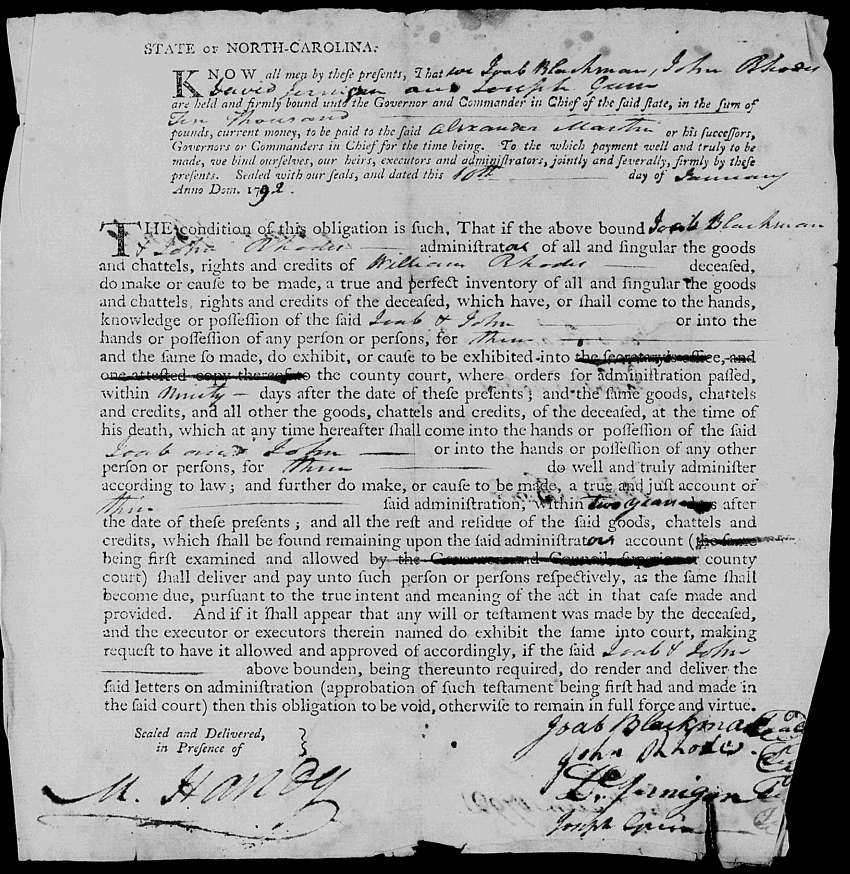 STATE OF NORTH-CAROLINA:
KNOW all men by these presents, That we Joab Blackman, John Rhodes
David Jernigan and Joseph
are held and firmly bound unto the Governor and Commander in Chief of the said ſtate, in the ſum of
Ten Thouſand
pounds, current money, to be paid to the ſaid Alexander Martin or his ſucceſſors,
Governors or Commanders in Chief for the time being. To the which payment well and truly to be
made, we bind ourſelves, our heirs, executors and adminiſtrators, jointly and ſeverally, firmly by theſe
preſents. Sealed with our ſeals, and dated this 10th day of January
Anno Dom. 1792.
THE condition of this obligation is ſuch, That if the above bound Joab Blackman
& John Rhodes adminiſtrators of all and ſingular the goods
and chattels, rights and credits of William Rhodes deceaſed,
do make or cauſe to be made, a true and perfect inventory of all and ſingular the goods
and chattels, rights and credits of the deceaſed, which have, or ſhall come to the hands,
knowledge or poſſeſſion of the ſaid Joab & John or into the
hands or poſſeſſion of any perſon or perſons, for them
and the ſame ſo made, do exhibit, or cauſe to be exhibited into the ſecretary's office, and
one atteſted copy thereof to the county court, where orders for adminiſtration paſſed,
within Ninety days after the date of theſe preſents; and the ſame goods, chattels
and credits, and all other the goods, chattels and credits, of the deceaſed, at the time of
his death, which at any time hereafter ſhall come into the hands or poſſeſſion of the ſaid
Joab and John or into the hands or poſſeſſion of any other
perſon or perſons, for them do well and truly adminiſter
according to law; and further do make, or cauſe to be made, a true and juſt account of
their ſaid adminiſtration, within two years after
the date of theſe preſents; and all the reſt and reſidue of the ſaid goods, chattels and
credits, which ſhall be found remaining upon the ſaid adminiſtrators account (the ſame
being firſt examined and allowed by the Governor and Council, ſuperior county
court) ſhall deliver and pay unto ſuch perſon or perſons reſpectively, as the ſame ſhall
become due, purſuant to the true intent and meaning of the act in that caſe made and
provided. And if it ſhall appear that any will or teſtament was made by the deceaſed,
and the executor or executors therein named do exhibit the ſame into court, making
requeſt to have it allowed and approved of accordingly, if the ſaid Joab & John
above bounden, being thereunto required, do render and deliver the
ſaid letters on adminiſtration (approbation of ſuch teſtament being firſt had and made in
the ſaid court) then this obligation to be void, otherwiſe to remain in full force and virtue.
Sealed and Delivered,
in Preſence of
Joab Blackman
John Rhodes
D. Jernigan
Joseph
M. Handy